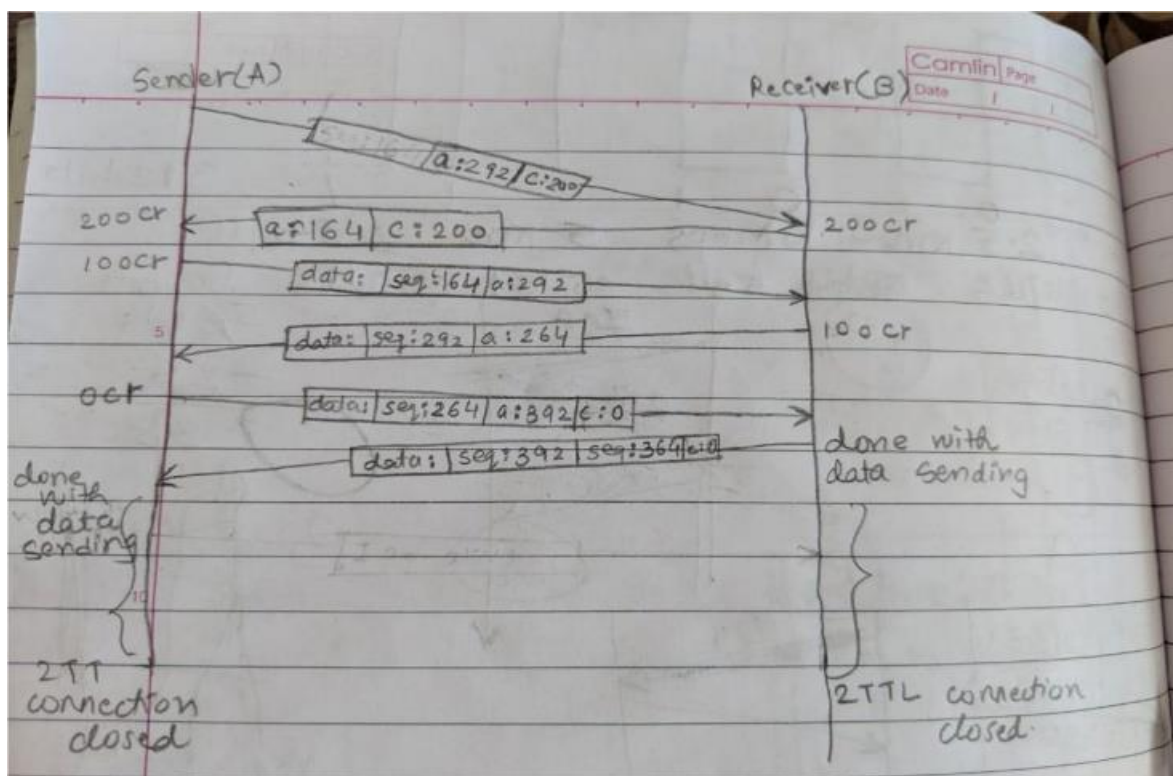 Sender(A)
Receiver(B)
Camlin Page
Date / /
a:292/c:200
200cr
a:164 | c:200
200cr
100cr
data: | seq:164 | a:292
5
data: | seq:292 | a:264
100cr
0cr
data: | seq:264 | a:392 | c:0
data: | seq:392 | seq:364 | c:0
done with
data sending
done
with
data
sending
10
2TT
connection
closed
2TTL connection
closed.